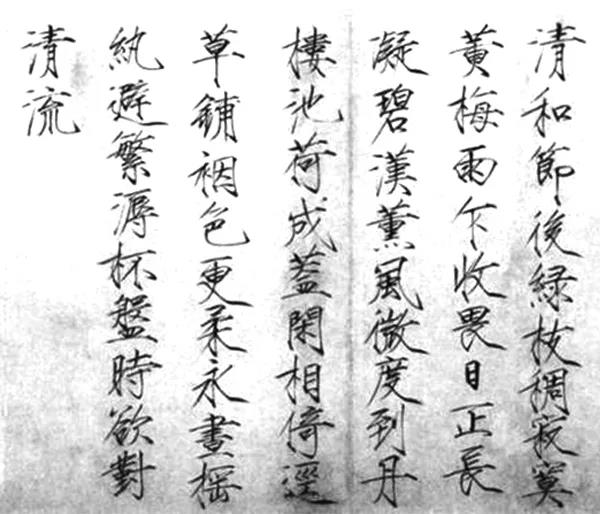 清和節後緑枝稠寂寞
黃梅雨乍收畏日正長
凝碧漢薰風微度到丹
樓池荷成蓋閑相倚逕
草鋪裀色更柔永晝搖
紈避繁溽杯盤時欲對
清流